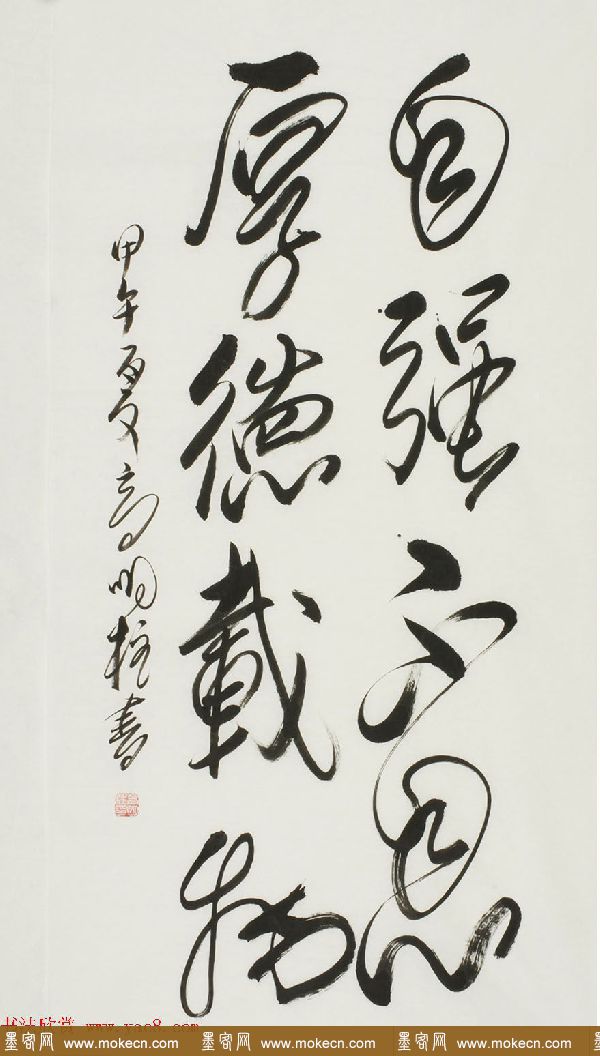 自强不息
厚德载物
甲午夏高明柱书
书法欣赏 www.yac8.com
墨客网 www.mokecn.com 墨客网 www.mokecn.com 墨客网 www.mokecn.com 墨客网